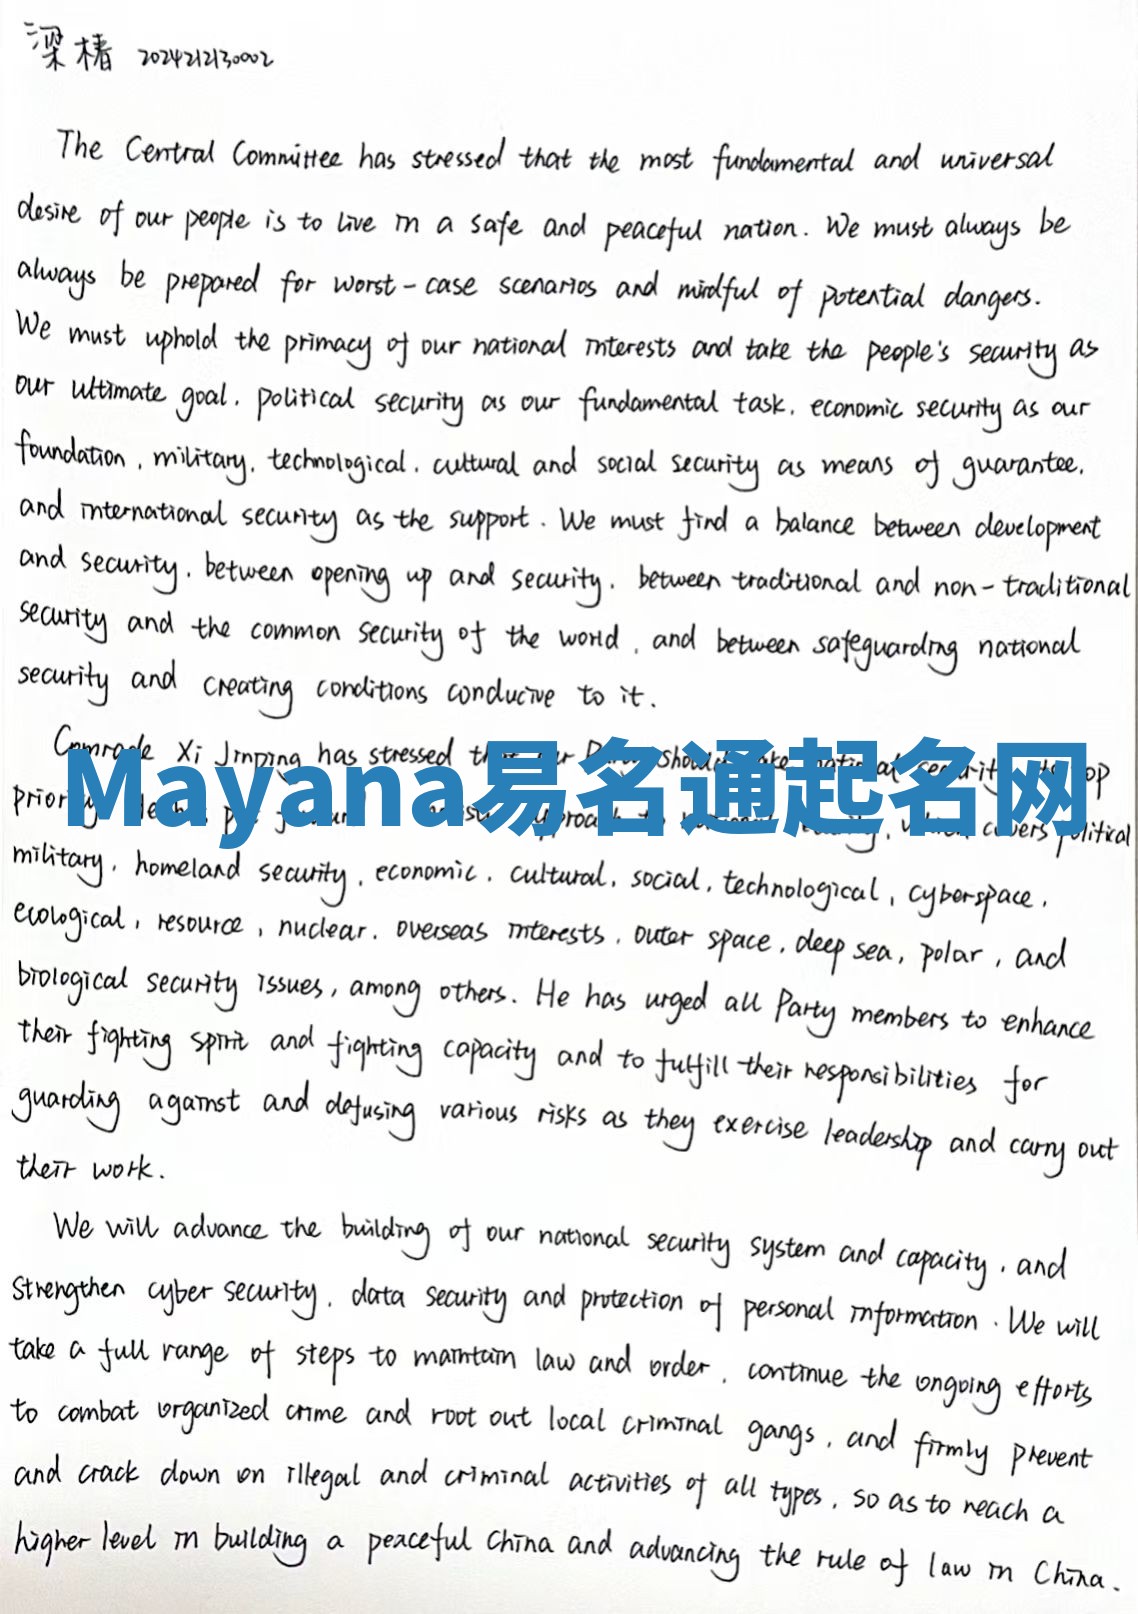 梁椿 2024212130002
The Central Committee has stressed that the most fundamental and universal
desire of our people is to live in a safe and peaceful nation. We must always be
always be prepared for worst-case scenarios and mindful of potential dangers.
We must uphold the primacy of our national interests and take the people's security as
our ultimate goal, political security as our fundamental task, economic security as our
foundation, military, technological, cultural and social security as means of guarantee,
and international security as the support. We must find a balance between development
and security, between opening up and security, between traditional and non-traditional
security and the common security of the world, and between safeguarding national
security and creating conditions conducive to it.
Comrade Xi Jinping has stressed
Mayana易名通起名网
covers political
military, homeland security, economic, cultural, social, technological, cyberspace,
ecological, resource, nuclear, overseas interests, outer space, deep sea, polar, and
biological security issues, among others. He has urged all Party members to enhance
their fighting spirit and fighting capacity and to fulfill their responsibilities for
guarding against and defusing various risks as they exercise leadership and carry out
their work.
We will advance the building of our national security system and capacity, and
strengthen cyber security, data security and protection of personal information. We will
take a full range of steps to maintain law and order, continue the ongoing efforts
to combat organized crime and root out local criminal gangs, and firmly prevent
and crack down on illegal and criminal activities of all types, so as to reach a
higher level in building a peaceful China and advancing the rule of law in China.